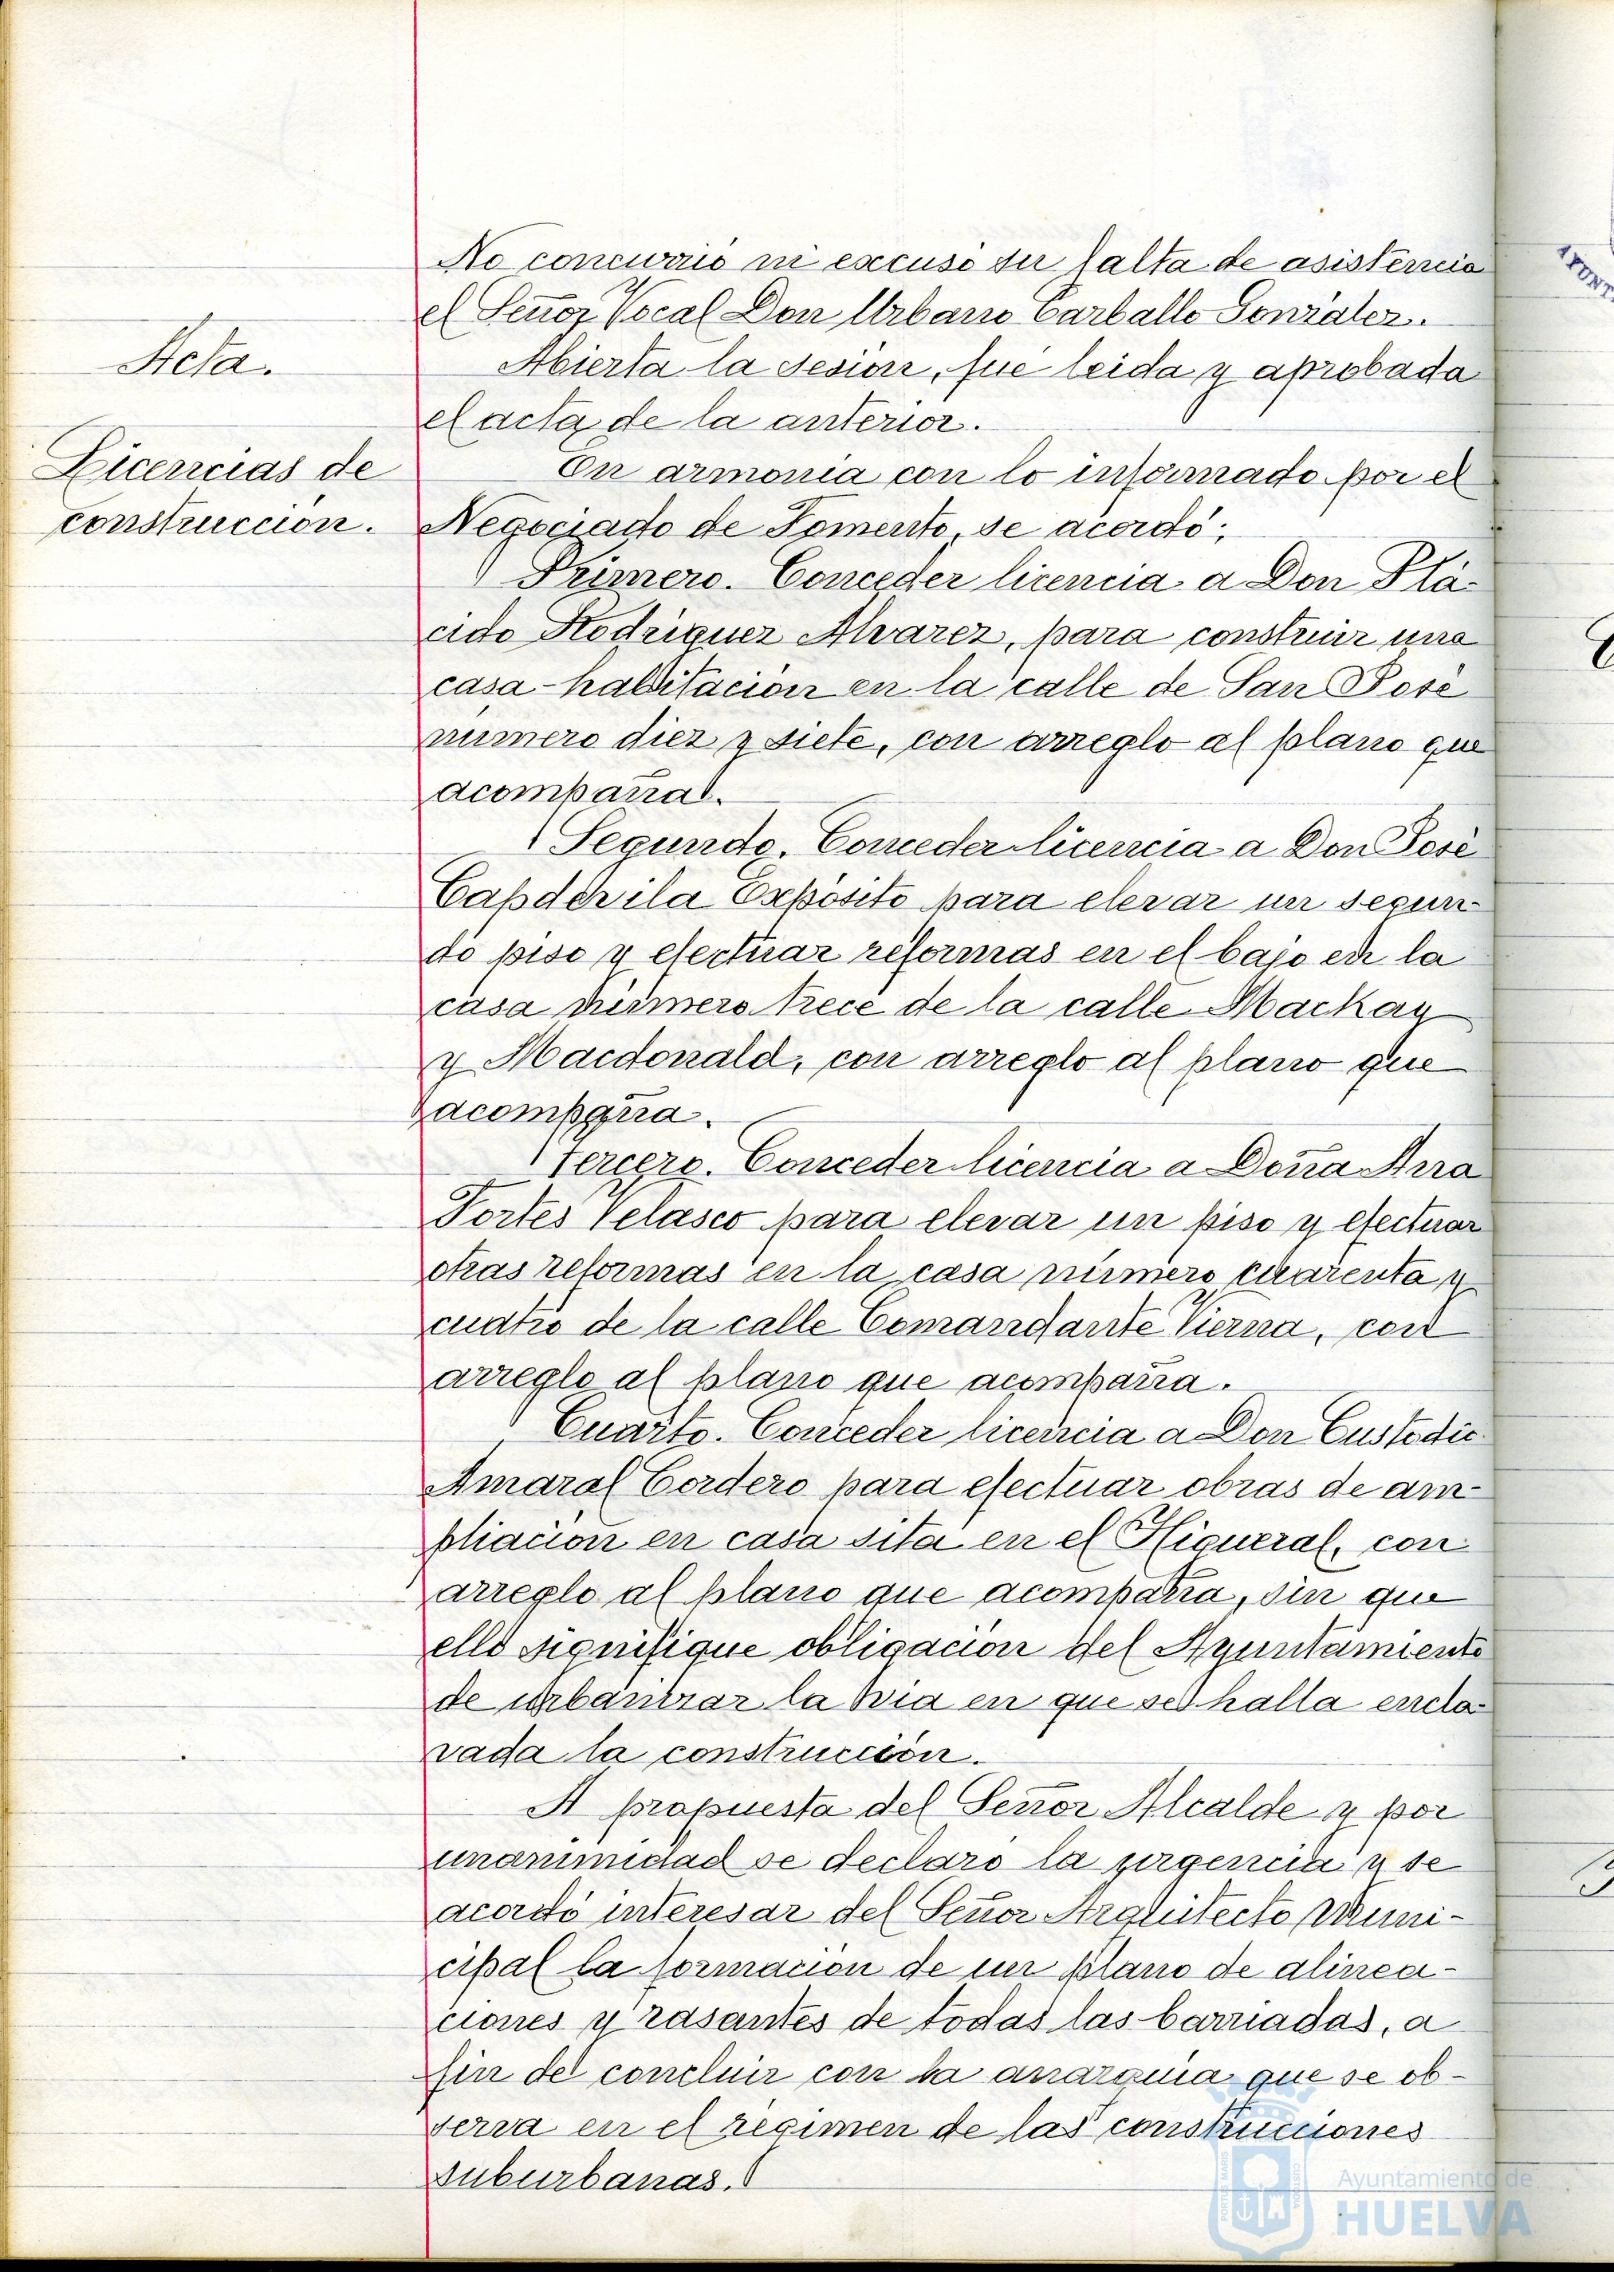 No concurrió ni excusó su falta de asistencia
el Señor Vocal Don Urbano Carballo González.
Acta.
Abierta la sesión, fué leida y aprobada
el acta de la anterior.
Licencias de
construcción.
En armonia con lo informado por el
Negociado de Fomento, se acordó;
Primero. Conceder licencia a Don Plá-
cido Rodriguez Alvarez, para construir una
casa-habitación en la calle de San José
número diez y siete, con arreglo al plano que
acompaña.
Segundo. Conceder licencia a Don José
Capdevila Expósito para elevar un segun-
do piso y efectuar reformas en el bajo en la
casa número trece de la calle Mackay
y Macdonald, con arreglo al plano que
acompaña.
Tercero. Conceder licencia a Doña Ana
Fortes Velasco para elevar un piso y efectuar
otras reformas en la casa número cuarenta y
cuatro de la calle Comandante Vierna, con
arreglo al plano que acompaña.
Cuarto. Conceder licencia a Don Custodio
Amaral Cordero para efectuar obras de am-
pliación en casa sita en el Higueral, con
arreglo al plano que acompaña, sin que
ello signifique obligación del Ayuntamiento
de urbanizar la via en que se halla encla-
vada la construcción.
A propuesta del Señor Alcalde y por
unanimidad se declaró la urgencia y se
acordó interesar del Señor Arquitecto Muni-
cipal la formación de un plano de alinea-
ciones y rasantes de todas las barriadas, a
fin de concluir con la anarquia que se ob-
serva en el régimen de las construcciones
suburbanas.
Ayuntamiento de
HUELVA